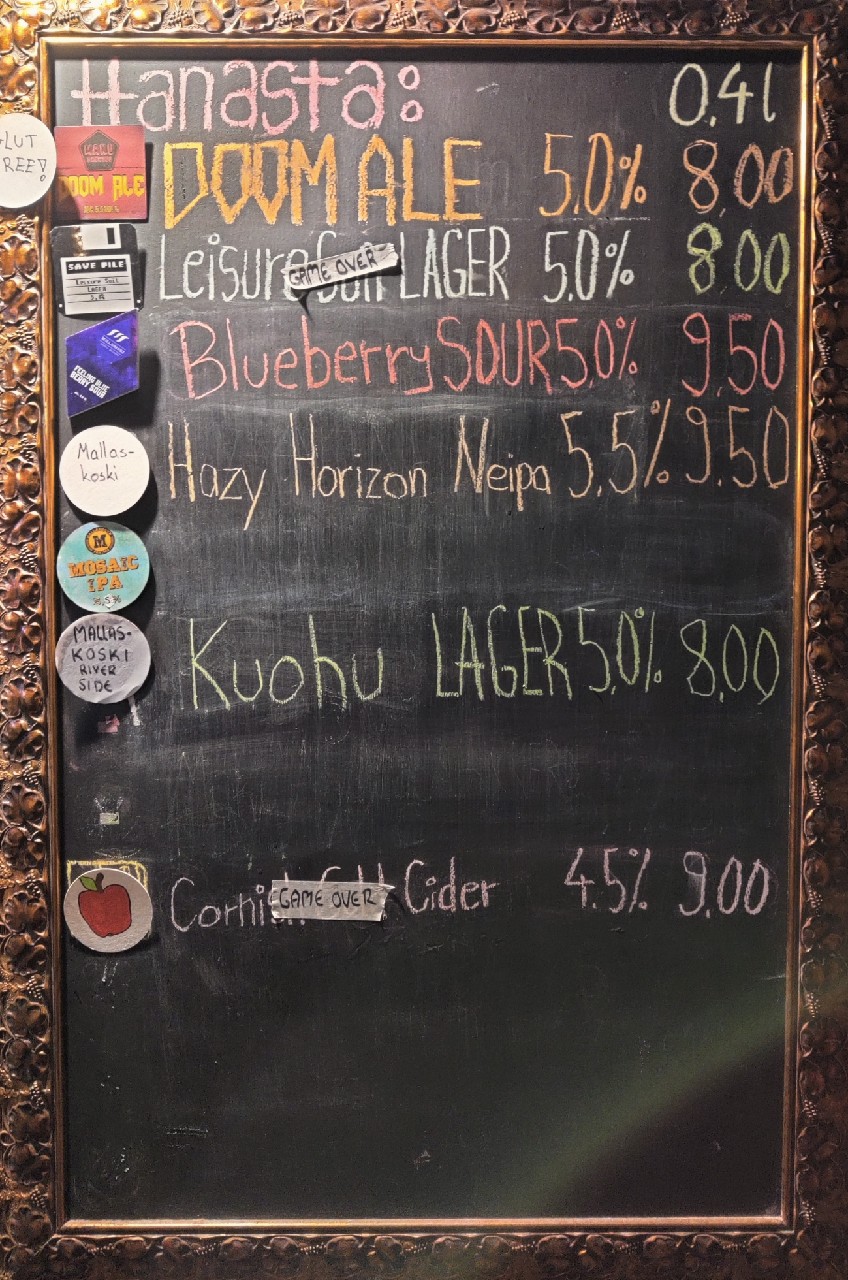 Hanasta: 0.4l
LUT
REE!
KAKU
DOOM ALE
DOOM ALE 5.0% 8,00
SAVE FILE
Leisure Suit
Lager
Leisure Suit LAGER 5.0% 8.00
GAME OVER
FEELING BLUE
BERRY SOUR
Blueberry SOUR 5.0% 9,50
Mallas-
koski
Hazy Horizon Neipa 5,5% 9,50
M
MOSAIC
IPA
MALLAS-
KOSKI
RIVER
SIDE
Kuohu LAGER 5.0% 8.00
Cornish Gold Cider 4.5% 9.00
GAME OVER